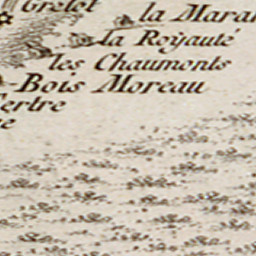 Grelet
la Maran
la Royauté
les Chaumonts
Bois Moreau
ertre
e